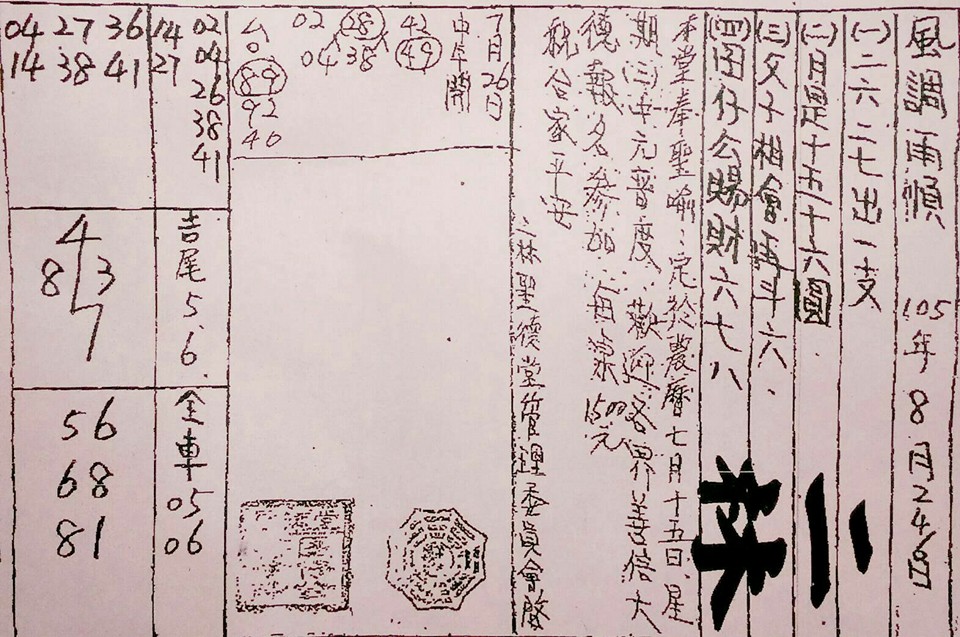 風調雨順 105年8月24日
(一)二六二七出一支
(二)月是十五十六圓
(三)父子相會再斗六
(四)田仔公賜財六七八
二林
本堂奉聖喻:定於農曆七月十五日星
期(三)中元普度 歡迎各界善信大
德報名參加 每桌1500元
祝合家平安
二林聖德堂管理委員會啟
7月26日
中午開
42
49
28
38
02
04
台
89
92
40
02
04
26
38
41
14
27
吉尾5.6
全車
05
06
04 27 36
14 38 41
4
8 3
7
56
68
81